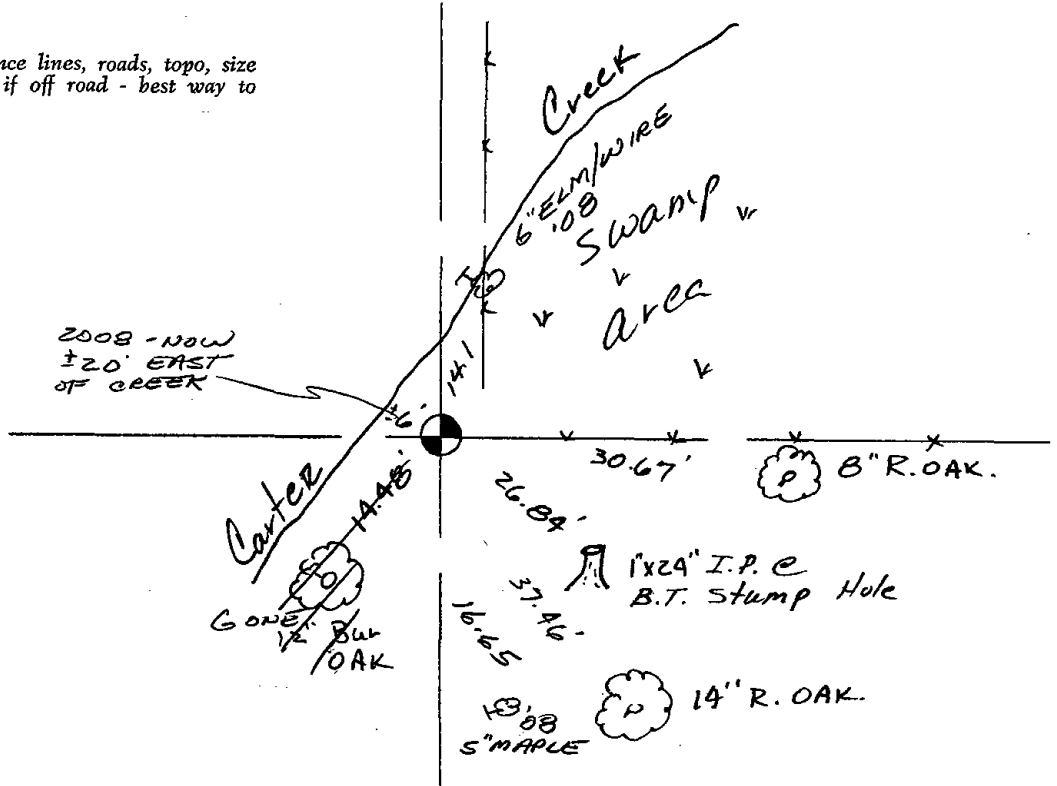 nce lines, roads, topo, size
if off road - best way to
Creek
6" ELM/WIRE
'08
Swamp
area
2008 - NOW
±20' EAST
OF CREEK
±6'
30.67'
8" R. OAK.
Carter
14.48'
26.84'
1"x24" I.P. @
B.T. Stump Hole
37.46'
16.65
GONE
12" Bur
OAK
'08
5" MAPLE
14" R. OAK.